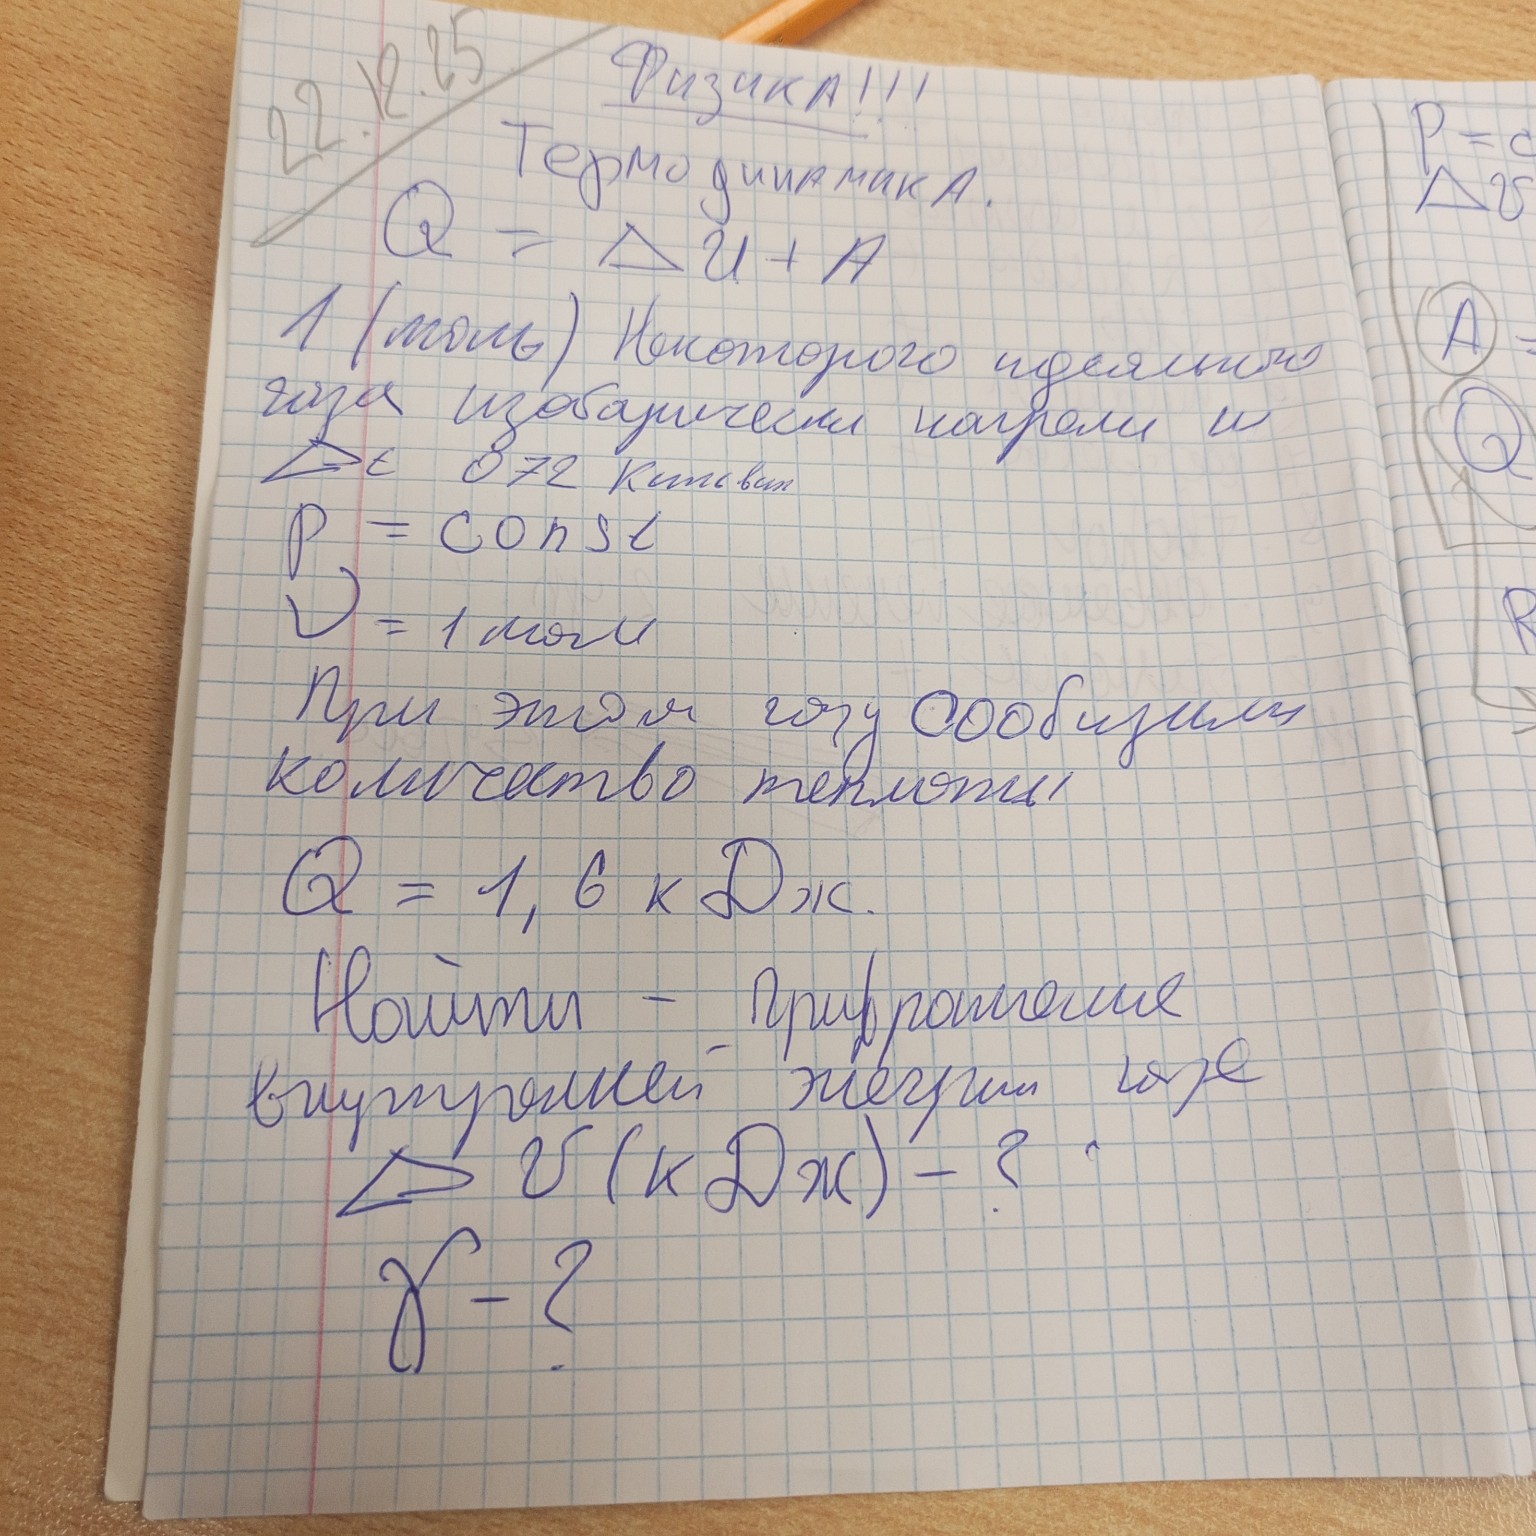 22.12.25
Физика!!!
Термодинамика.
Q = ΔU + A
1 (моль) Некоторого идеального
газа изобарически нагрели н
Δt 072 Кельвин
P = const
ν = 1 моль
При этом газу сообщили
количество теплоты
Q = 1,6 кДж.
Найти - приращение
внутренней энергии газа
ΔU (кДж) - ?
γ - ?
P = c
ΔU
A =
Q
R